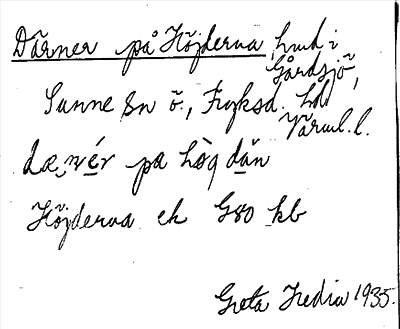 Därner på Höjderna, hmd i
Gårdsjö,
Sunne sn ö., Fryksd. hd
Värml. l.
dæ, vér pa hòg dän
Höjderna ek G80 kb
Greta Hedin 1935.